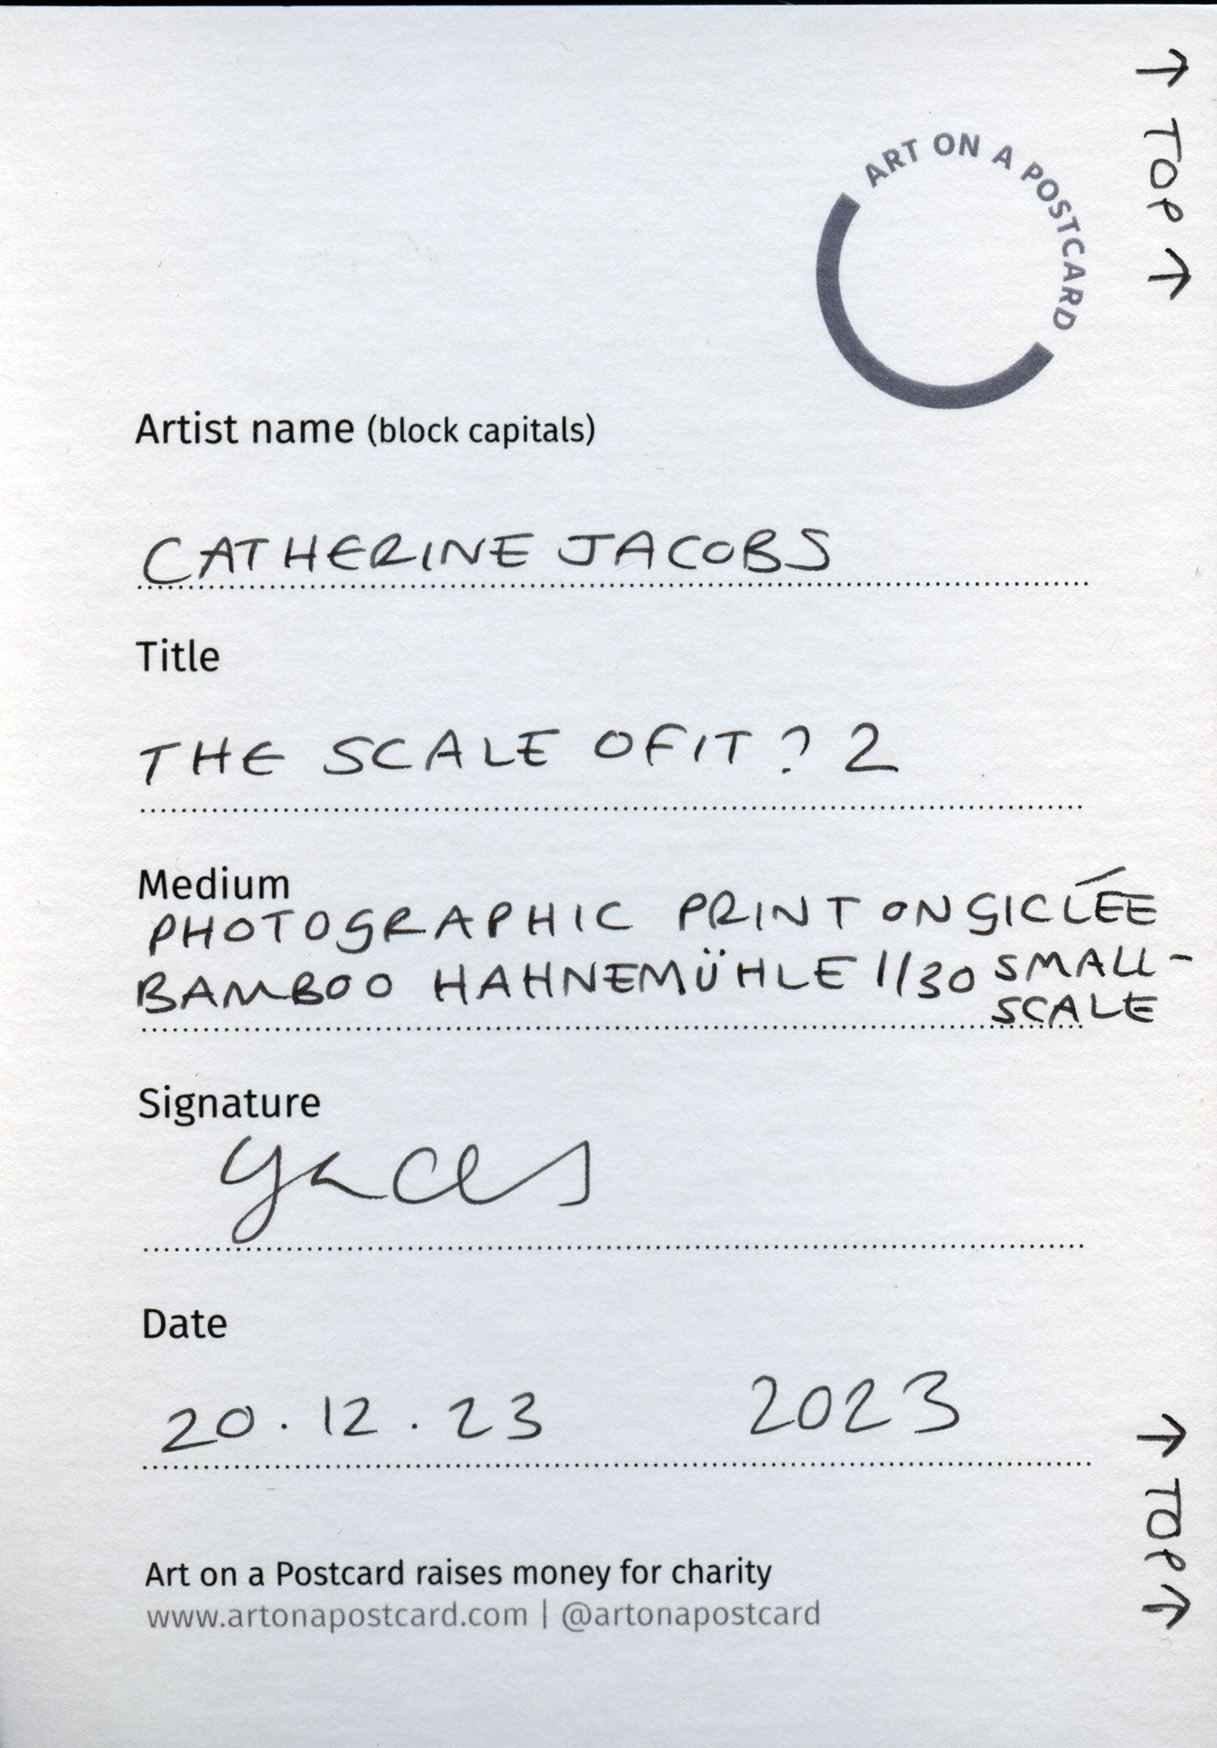 → TOP →
ART ON A POSTCARD
Artist name (block capitals)
CATHERINE JACOBS
Title
THE SCALE OF IT ? 2
Medium
PHOTOGRAPHIC PRINT ON GICLÉE
BAMBOO HAHNEMÜHLE 1/30 SMALL-
SCALE
Signature
Date
20.12.23 2023
→ TOP →
Art on a Postcard raises money for charity
www.artonapostcard.com | @artonapostcard